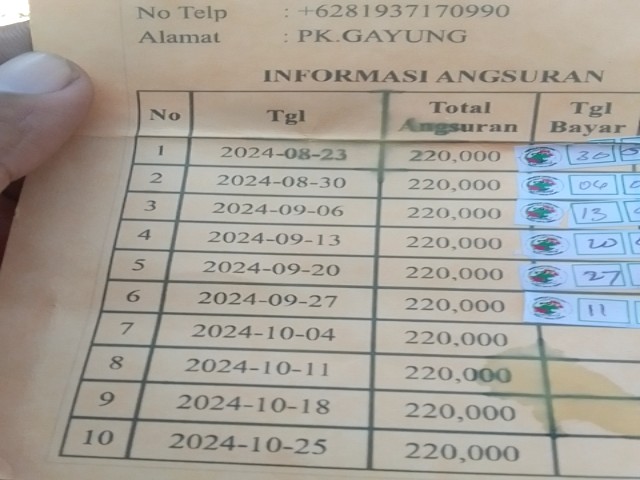 No Telp : +6281937170990
Alamat : PK.GAYUNG
INFORMASI ANGSURAN
No Tgl Total Angsuran Tgl Bayar
1 2024-08-23 220,000 30
2 2024-08-30 220,000 06
3 2024-09-06 220,000 13
4 2024-09-13 220,000 20
5 2024-09-20 220,000 27
6 2024-09-27 220,000 11
7 2024-10-04 220,000
8 2024-10-11 220,000
9 2024-10-18 220,000
10 2024-10-25 220,000